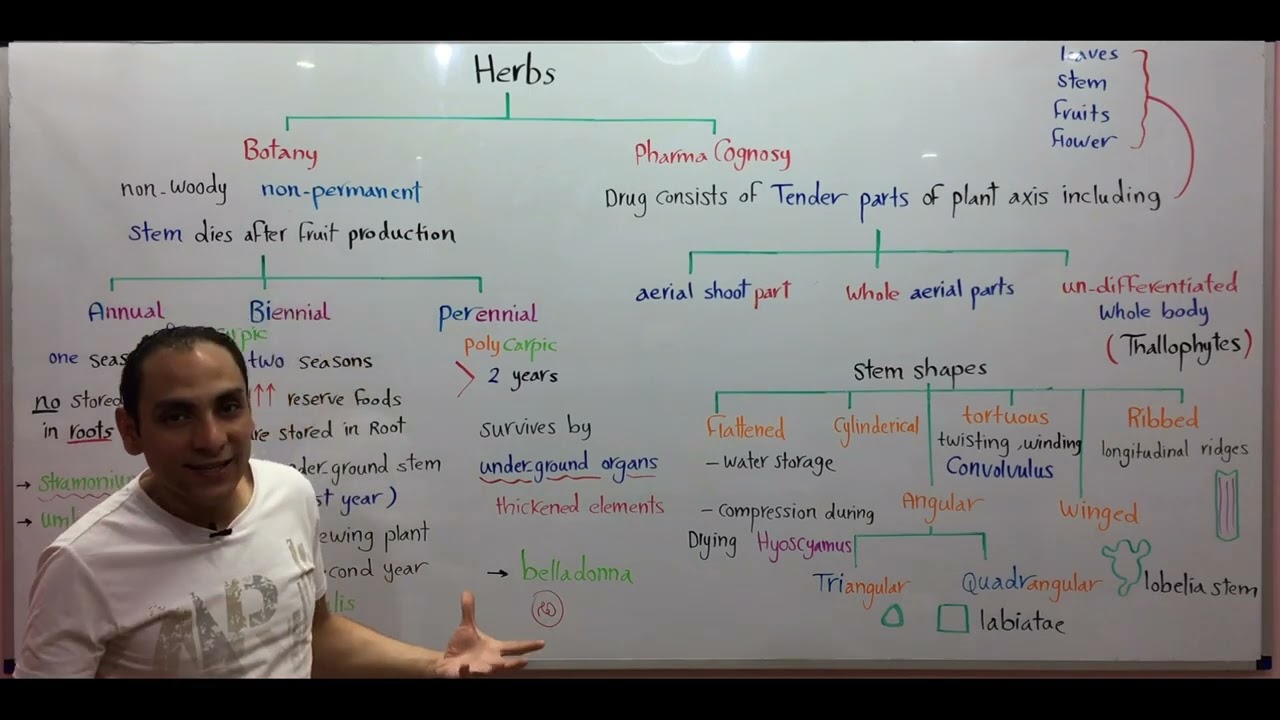 Herbs
Botany
non-woody non-permanent
stem dies after fruit production
Annual
one
no stored
in roots
→
→
Biennial
two seasons
↑↑ reserve foods
stored in Root
stem
year)
plant
year
perennial
polycarpic
> 2 years
survives by
underground organs
thickened elements
→ belladonna
PharmaCognosy
Drug consists of Tender parts of plant axis including
leaves
stem
fruits
flower
aerial shoot part
whole aerial parts
un-differentiated
whole body
(Thallophytes)
stem shapes
Flattened
- water storage
- compression during
Drying Hyoscyamus
Cylinderical
tortuous
twisting, winding
Convolvulus
Ribbed
longitudinal ridges
Angular
Triangular
Quadrangular
labiatae
Winged
lobelia stem